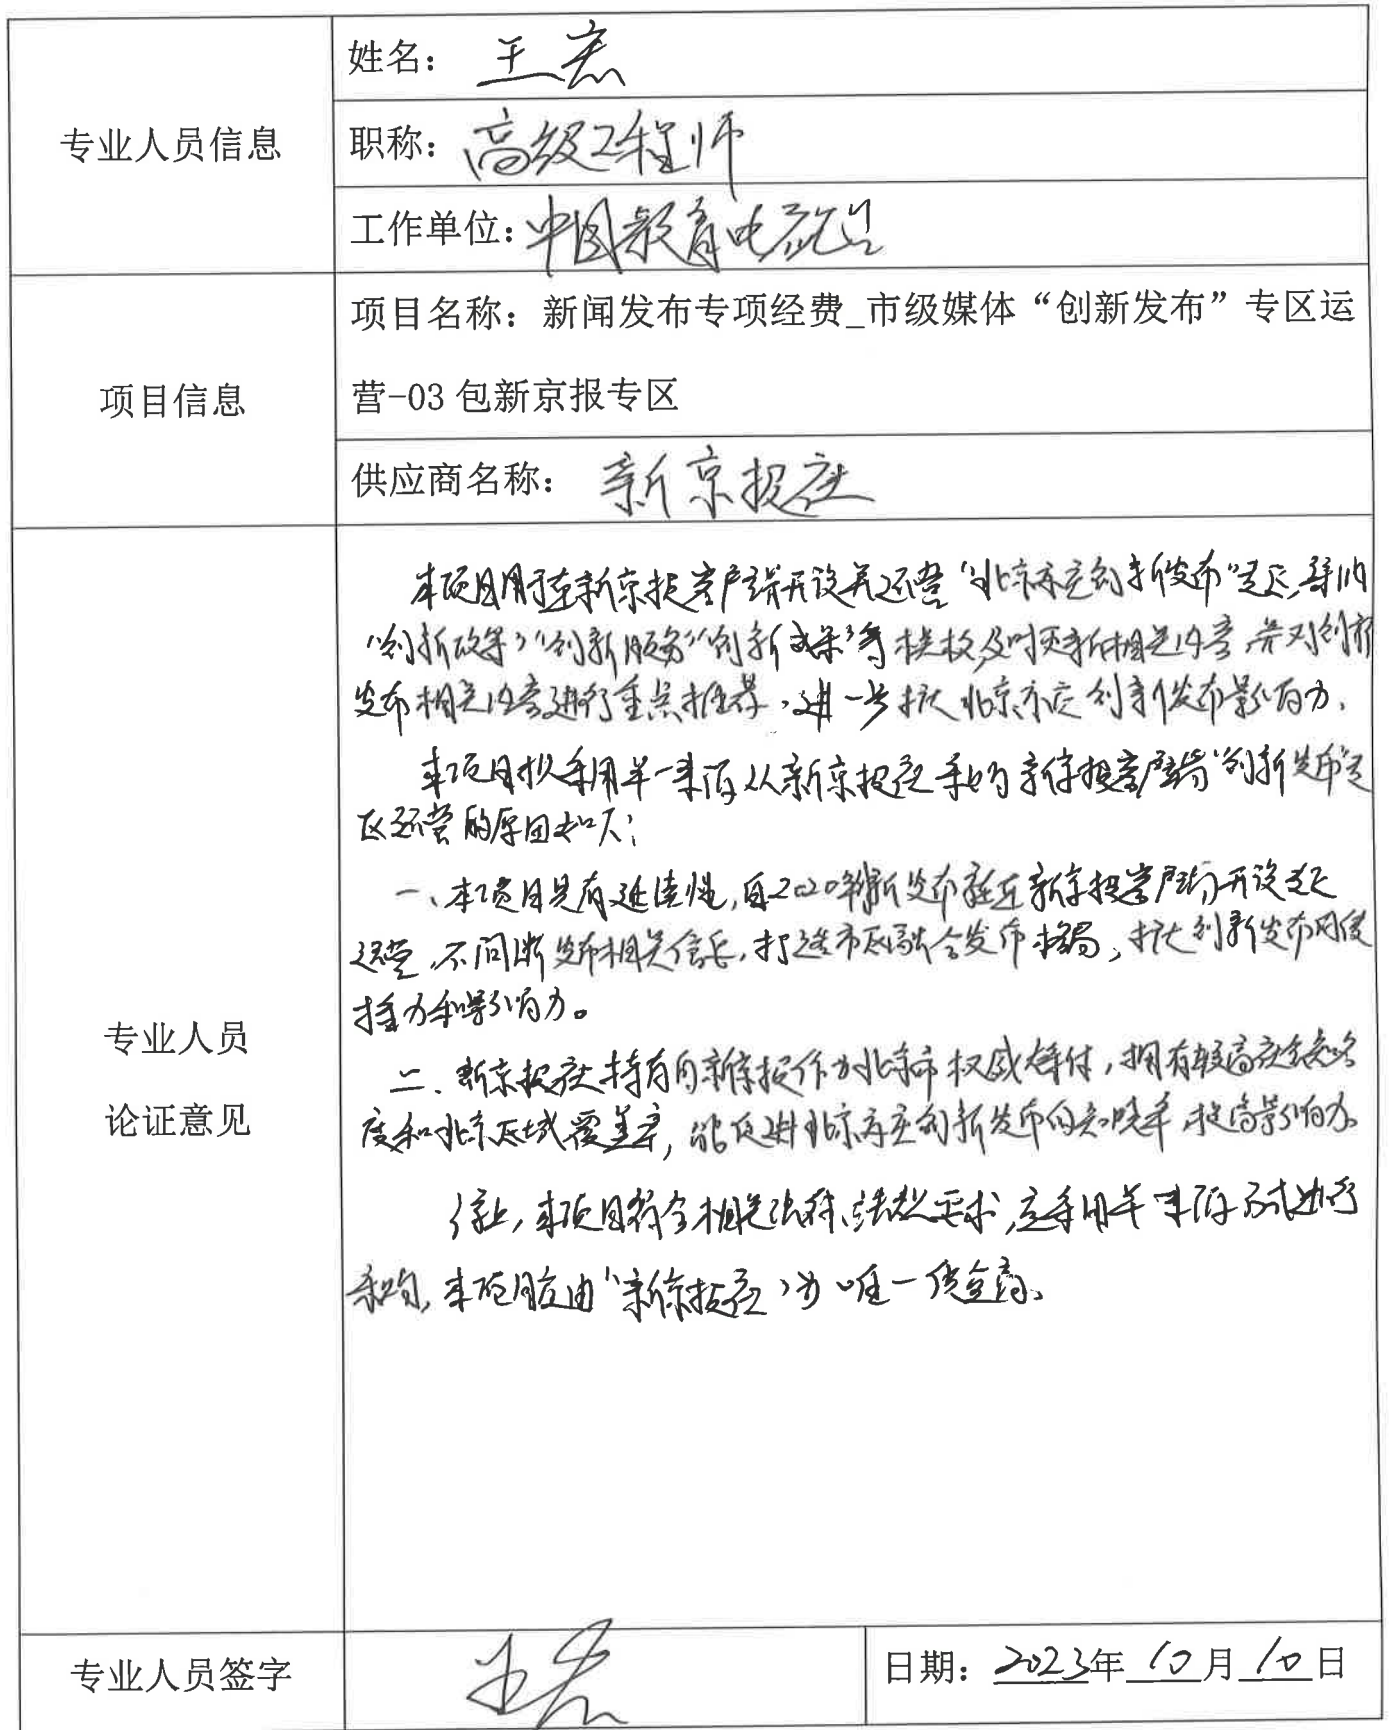 姓名：王杰
专业人员信息
职称：高级工程师
工作单位：中国教育电视台
项目名称：新闻发布专项经费_市级媒体“创新发布”专区运
项目信息
营-03包新京报专区
供应商名称：新京报社
本项目用于在新京报客户端开设并运营“北京市应创新发布”专区，
“创新政策”“创新服务”“创新成果”等模板及时更新相关内容，并对创新
发布相关内容进行重点推荐，进一步扩大北京市应创新发布影响力。
本项目拟采用单一来源从新京报社采购新京报客户端“创新发布”专
区运营的原因如下：
一、本项目具有延续性，自2020年创新发布就在新京报客户端开设专区
运营，不间断发布相关信息，打造市区融合发布格局，扩大创新发布传
播力和影响力。
二、新京报社持有的新京报作为北京市权威媒体，拥有较高
度和北京区域覆盖率，能促进北京市应创新发布的知晓率，提高影响力。
综上，本项目符合相关法律、法规要求，应采用单一来源方式进行
采购，本项目应由“新京报社”为唯一供应商。
专业人员
论证意见
专业人员签字
王杰
日期：2023年10月10日